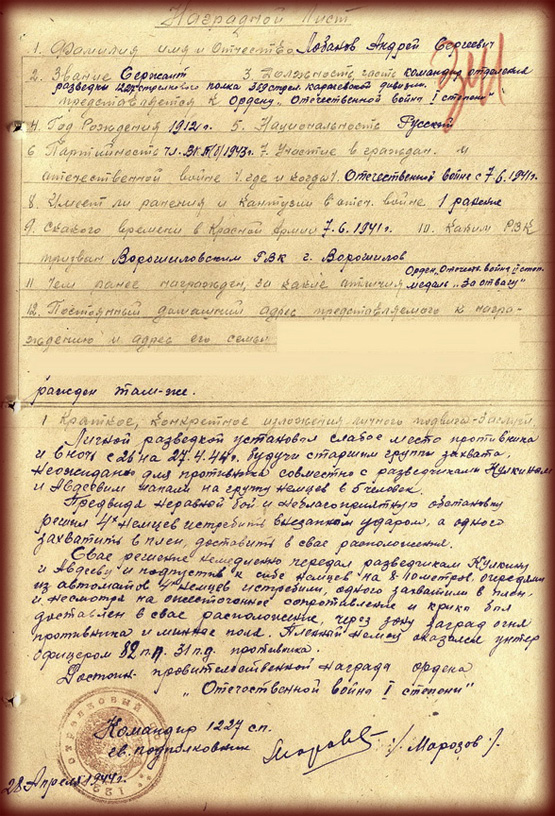 Наградной Лист
1. Фамилия имя и Отчество Лобанов Андрей Сергеевич
2. Звание Сержант 3. Должность, часть командир отделения
разведки 1227 стрелкового полка 369 стрел. карачевской дивизии.
представляется к Ордену „Отечественной война I степени"
4. Год Рождения 1912 г. 5. Национальность Русский
6. Партийность 7. Участие в граждан. и
отечественной войне (где и когда). Отечественной войне с 7.6.1941г.
8. Имеет ли ранения и контузии в отеч. войне 1 ранение
9. С какого времени в Красной Армии 7.6.1941г. 10. Каким РВК
призван Ворошиловским ГВК г. Ворошилов
11 Чем ранее награжден, за какие отличия Орден „Отечеств. война II степ.
медаль „За отвагу"
12. Постоянный домашний адрес представляемого к награ-
ждению и адрес его семьи
рожден там-же.
1 Краткое, конкретное изложения личного подвига-заслуги
Личной разведкой установил слабое место противника
и в ночь с 26 на 27.4.44г. будучи старшим группы захвата,
неожиданно для противника совместно с разведчиками Кулкиным
и Авдеевим напали на группу немцев в 5 человек.
Предвидя неравной бой и неблагоприятную обстановку
решил 4х Немцев истребить внезапким ударом, а одного
захватить в плен, доставить в свае расположение.
Свае решение немедленно передал разведчикам Кулкину
и Авдееву и подпустив к себе Немцев на 8-10 метров. очередями
из автоматов 4х Немцев истребили, одного захватили в плен.
и несмотря на ожесточенное сопротивление и крики был
доставлен в свае расположение, через зону заград огня
противника и минное поле. Пленный немец оказался унтер
офицером 82 п.п. 31 п.д. противника.
Достоин. правительственной награда ордена
„Отечественной война I степени"
Командир 1227 с.п.
гв. подполковник /. Марозов /.
28 Апреля 1944г.